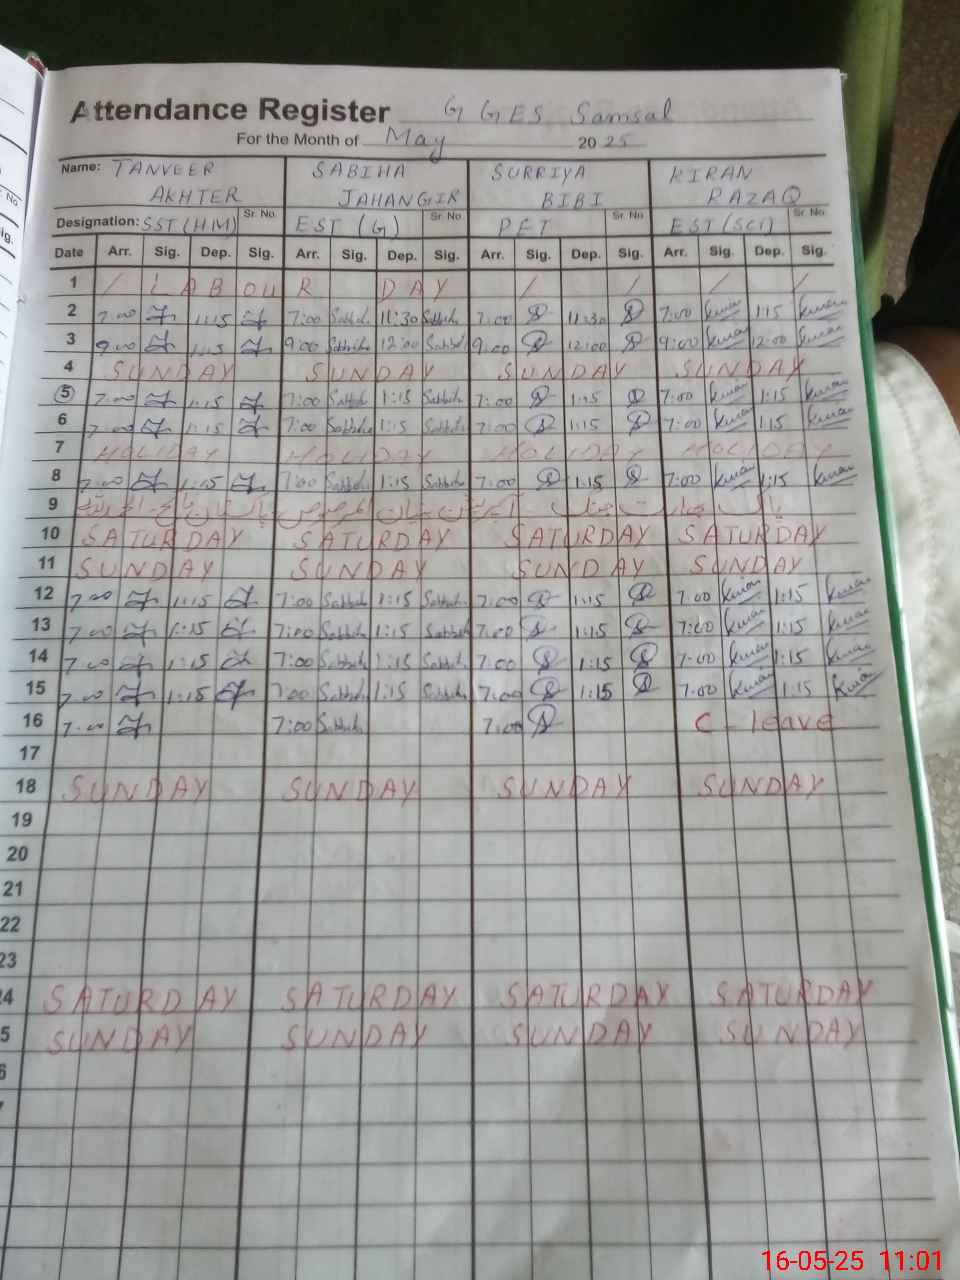 Attendance Register G GES Samsal
For the Month of May 2025
Name: TANVEER AKHTER SABIHA JAHANGIR SURRIYA BIBI KIRAN RAZAQ
Designation: SST (HM) Sr. No. EST (G) Sr. No. PET Sr. No. EST (SCI) Sr. No.
Date Arr. Sig. Dep. Sig. Arr. Sig. Dep. Sig. Arr. Sig. Dep. Sig. Arr. Sig. Dep. Sig.
1 / LABOUR DAY / / / /
2 7:00 1:15 7:00 Sabbih 11:30 Sabbih 7:00 11:30 7:00 Kiran 1:15 Kiran
3 9:00 1:15 9:00 Sabbih 12:00 Sabbih 9:00 12:00 9:00 Kiran 12:00 Kiran
4 SUNDAY SUNDAY SUNDAY SUNDAY
5 7:00 1:15 7:00 Sabbih 1:15 Sabbih 7:00 1:15 7:00 Kiran 1:15 Kiran
6 7:00 1:15 7:00 Sabbih 1:15 Sabbih 7:00 1:15 7:00 Kiran 1:15 Kiran
7 HOLIDAY HOLIDAY HOLIDAY HOLIDAY
8 7:00 1:15 7:00 Sabbih 1:15 Sabbih 7:00 1:15 7:00 Kiran 1:15 Kiran
9
10 SATURDAY SATURDAY SATURDAY SATURDAY
11 SUNDAY SUNDAY SUNDAY SUNDAY
12 7:00 1:15 7:00 Sabbih 1:15 Sabbih 7:00 1:15 7:00 Kiran 1:15 Kiran
13 7:00 1:15 7:00 Sabbih 1:15 Sabbih 7:00 1:15 7:00 Kiran 1:15 Kiran
14 7:00 1:15 7:00 Sabbih 1:15 Sabbih 7:00 1:15 7:00 Kiran 1:15 Kiran
15 7:00 1:15 7:00 Sabbih 1:15 Sabbih 7:00 1:15 7:00 Kiran 1:15 Kiran
16 7:00 7:00 Sabbih 7:00 C - leave
17
18 SUNDAY SUNDAY SUNDAY SUNDAY
19
20
21
22
23
4 SATURDAY SATURDAY SATURDAY SATURDAY
5 SUNDAY SUNDAY SUNDAY SUNDAY
16-05-25 11:01